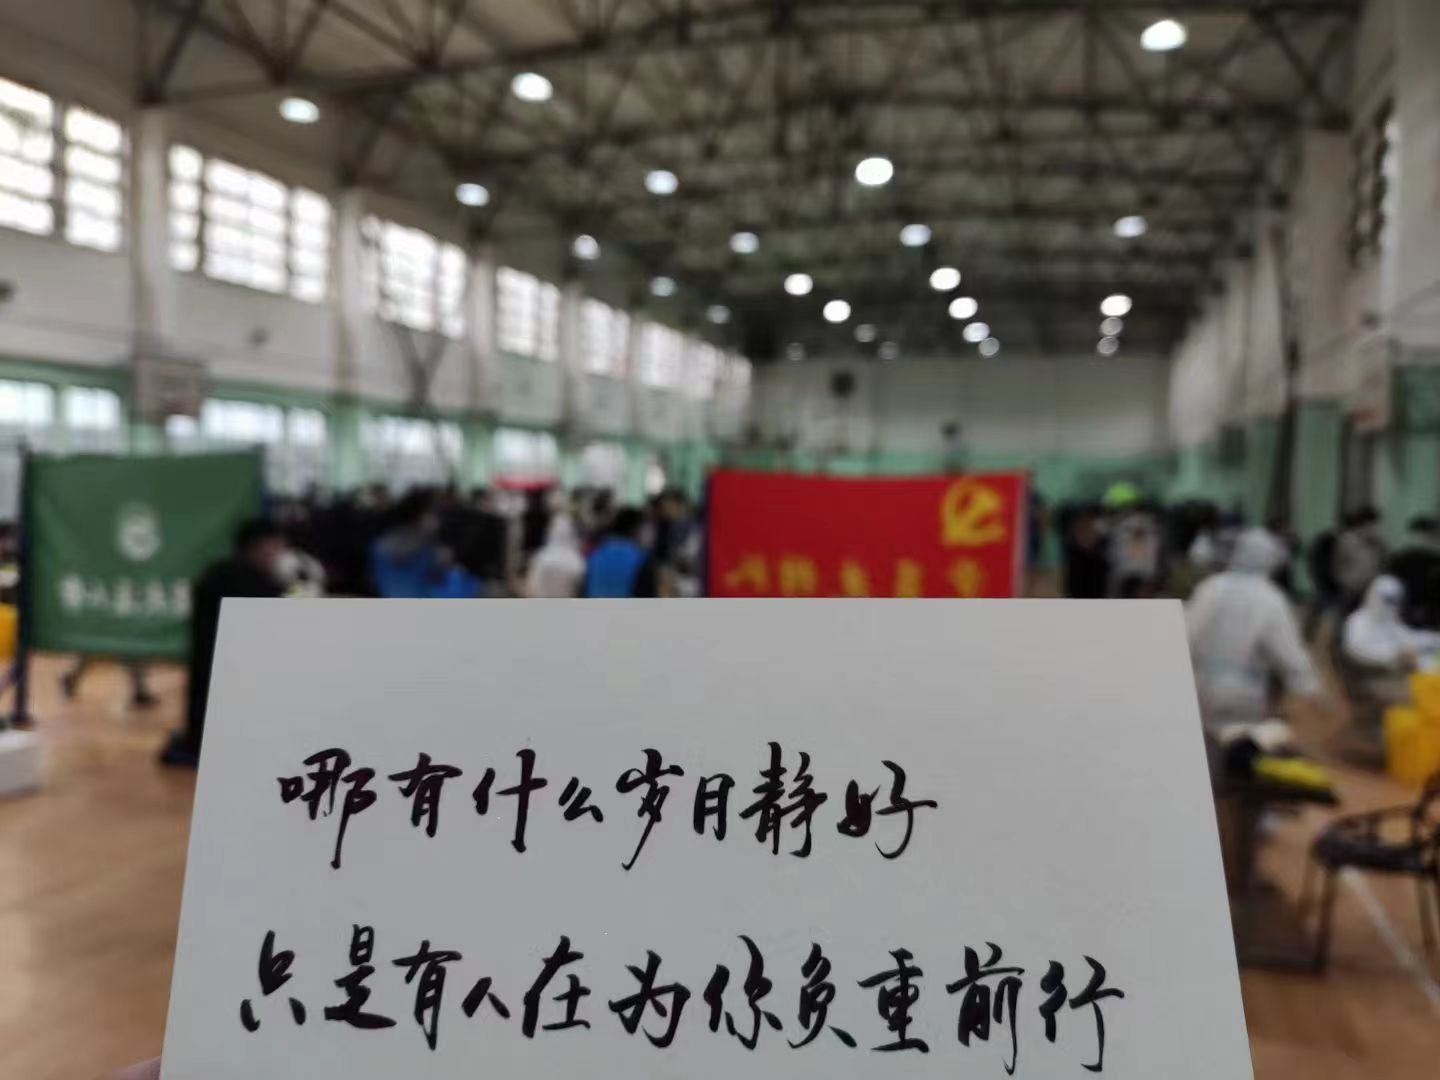 哪有什么岁月静好
只是有人在为你负重前行